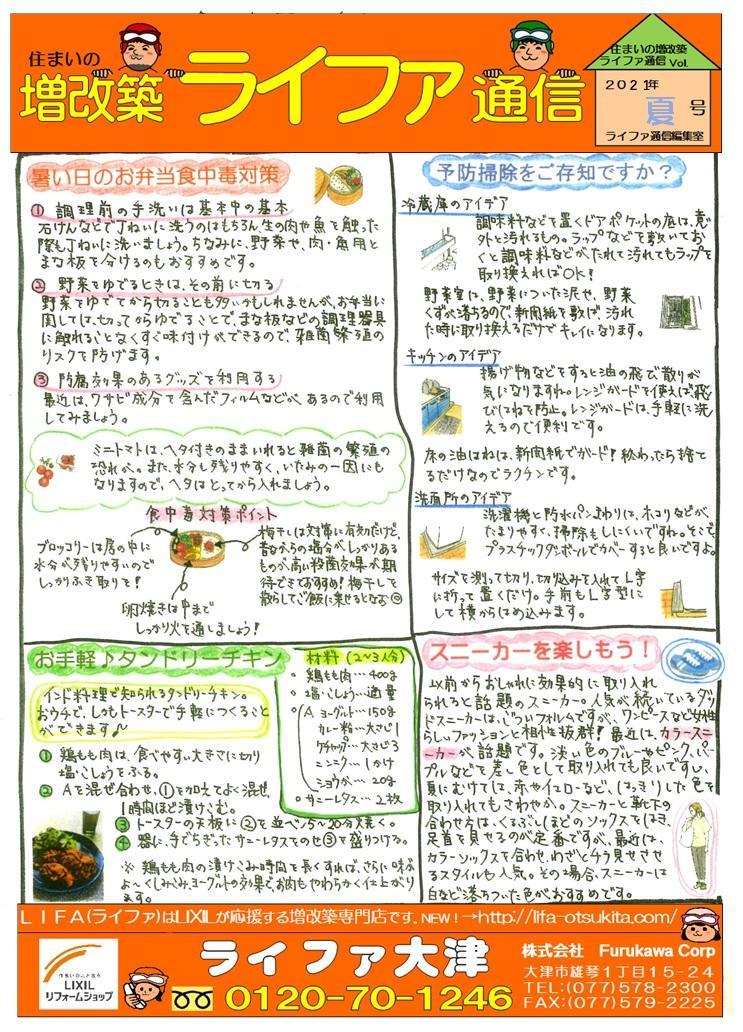 住まいの
増改築 ライファ通信
住まいの増改築
ライファ通信 Vol.
2021年
夏 号
ライファ通信編集室
暑い日のお弁当食中毒対策
① 調理前の手洗いは基本中の基本
石けんなどで丁ねいに洗うのはもちろん、生の肉や魚を触った
際も丁ねいに洗いましょう。ちなみに、野菜や、肉・魚用と
まな板を分けるのもおすすめです。
② 野菜をゆでるときは、その前に切る
野菜をゆでてから切ることも多いかもしれませんが、お弁当に
関しては、切ってからゆでることで、まな板などの調理器具
に触れることなくすぐ味付けができるので、雑菌繁殖の
リスクを防げます。
③ 防腐効果のあるグッズを利用する
最近は、ワサビ成分を含んだフィルムなどが、あるので利用
してみましょう。
ミニトマトは、ヘタ付きのままいれると雑菌の繁殖の
恐れが。また、水分も残りやすく、いたみの一因にも
なりますので、ヘタはとってから入れましょう。
食中毒対策ポイント
ブロッコリーは房の中に
水分が残りやすいので
しっかりふき取りを！
梅干しは対策に有効だけど、
昔ながらの塩分がしっかりある
ものが高い殺菌効果が期
待できておすすめ！梅干しを
散らしてご飯に乗せるとなお◎
卵焼きは中まで
しっかり火を通しましょう！
予防掃除をご存知ですか？
冷蔵庫のアイデア
調味料などを置くドアポケットの底は、意
外と汚れるもの。ラップなどを敷いてお
くと調味料などが、たれて汚れてもラップを
取り換えればOK！
野菜室は、野菜についた泥や、野菜
くずが落ちるので、新聞紙を敷けば、汚れ
た時に取り換えるだけでキレイになります。
キッチンのアイデア
揚げ物などをすると油の飛び散りが
気になりますね。レンジガードを使えば、飛
びはねを防止。レンジガードは、手軽に洗
えるので便利です。
床の油はねは、新聞紙でガード！終わったら捨て
るだけなのでラクチンです。
洗面所のアイデア
洗濯機と防水パンまわりは、ホコリなどが
たまりやすく、掃除もしにくいですね。そこで
プラスチックダンボールでカバーすると良いですよ。
サイズを測って切り、切り込みを入れてL字
に折って置くだけ。手前もL字型に
して横からはめ込みます。
お手軽♪タンドリーチキン
インド料理で知られるタンドリーチキン。
おウチで、しかもトースターで手軽につくるこ
とができます♪
① 鶏もも肉は、食べやすい大きさに切り
塩・こしょうをふる。
② Aを混ぜ合わせ、①を加えてよく混ぜ、
1時間ほど漬けこむ。
③ トースターの天板に②を並べ、15～20分焼く。
④ 器に、手でちぎったサニーレタスをのせ③を盛りつける。
※ 鶏もも肉の漬けこみ時間を長くすれば、さらに味が
よ～くしみこみ、ヨーグルトの効果でお肉もやわらかく仕上がり
ます。
材料(2～3人分)
鶏もも肉…400g
塩・こしょう…適量
A ヨーグルト…150g
カレー粉…大さじ1
ケチャップ…大さじ3
ニンニク…1かけ
ショウガ…20g
サニーレタス…2枚
スニーカーを楽しもう！
以前からおしゃれに効果的に取り入れ
られると話題のスニーカー。人気が続いているダッ
ドスニーカーは、ごついフォルムですが、ワンピースなど女性
らしいファッションと相性抜群！最近は、カラースニ
ーカーが、話題です。淡い色のブルーやピンク、パ
ープルなどを差し色として取り入れても良いですし、
夏にむけては、赤やイエローなど、はっきりした色を
取り入れてもさわやか。スニーカーと靴下の
合わせ方は、くるぶしほどのソックスをはき、
足首を見せるのが定番ですが、最近は、
カラーソックスを合わせ、わざとチラ見せさせ
るスタイルも人気。その場合、スニーカーは
白など落ちついた色がおすすめです。
LIFA(ライファ)はLIXILが応援する増改築専門店です。NEW！→http://lifa-otsukita.com/
LIXIL
リフォームショップ
ライファ大津
0120-70-1246
株式会社 Furukawa Corp
大津市雄琴1丁目15-24
TEL:(077)578-2300
FAX:(077)579-2225